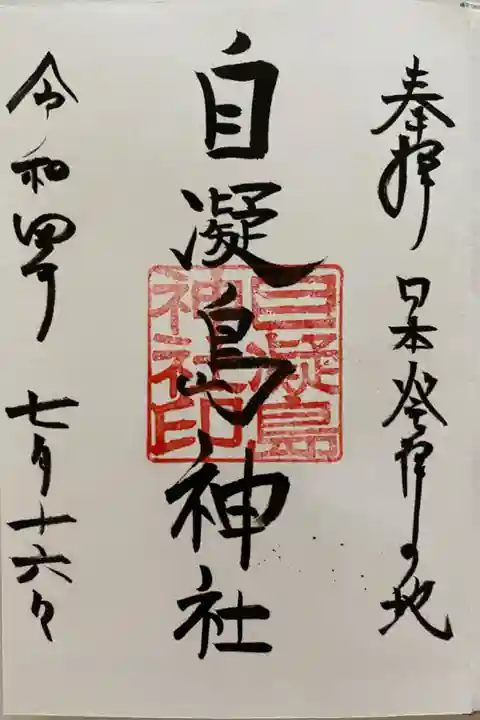 奉拝 日本発祥の地
自凝島神社
自凝島神社印
令和四年 七月十六日